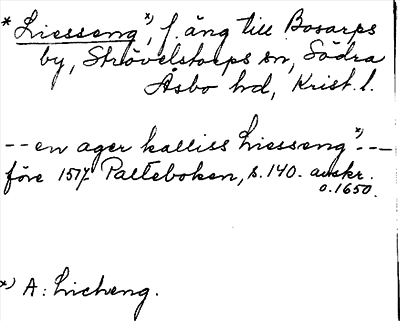 * Liesseng *), f. äng till Bosarps
by, Strövelstorps sn, Södra
Åsbo hd, Krist. l.
-- en ager kalliss Liesseng *) --
före 1517 Palteboken, s. 140. avskr.
o. 1650.
*) A: Licheng.